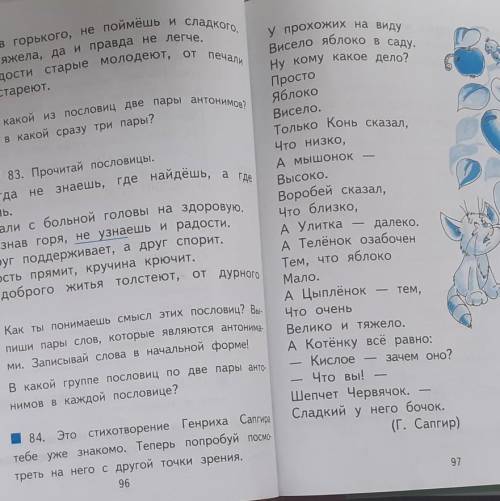 в горького, не поймёшь и сладкого.
яжела, да и правда не легче.
дости старые молодеют, от печали
стареют.
какой из пословиц две пары антонимов?
в какой сразу три пары?
83. Прочитай пословицы.
гда не знаешь, где найдёшь, а где
шь.
али с больной головы на здоровую.
знав горя, не узнаешь и радости.
руг поддерживает, а друг спорит.
ость прямит, кручина крючит.
доброго житья толстеют, от дурного
Как ты понимаешь смысл этих пословиц? Вы-
пиши пары слов, которые являются антонима-
ми. Записывай слова в начальной форме!
В какой группе пословиц по две пары анто-
нимов в каждой пословице?
84. Это стихотворение Генриха Сапгира
тебе уже знакомо. Теперь попробуй посмо-
треть на него с другой точки зрения.
96
У прохожих на виду
Висело яблоко в саду.
Ну кому какое дело?
Просто
Яблоко
Висело.
Только Конь сказал,
Что низко,
А мышонок —
Высоко.
Воробей сказал,
Что близко,
А Улитка — далеко.
А Телёнок озабочен
Тем, что яблоко
Мало.
А Цыплёнок — тем,
Что очень
Велико и тяжело.
А Котёнку всё равно:
— Кислое — зачем оно?
— Что вы! —
Шепчет Червячок. —
Сладкий у него бочок.
(Г. Сапгир)
97